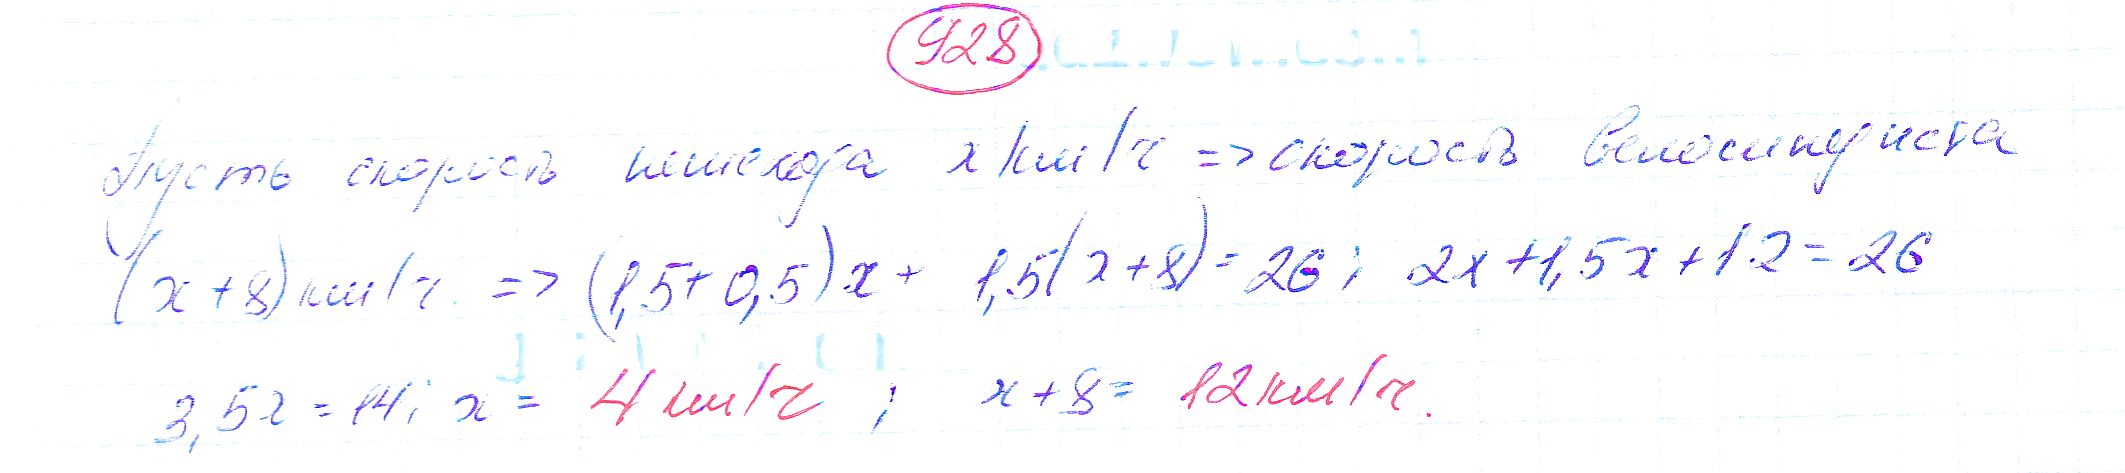 928
Пусть скорость пешехода x км/ч => скорость велосипедиста
(x+8) км/ч => (1,5+0,5)x + 1,5(x+8) = 26; 2x+1,5x+12=26
3,5x=14; x= 4 км/ч ; x+8= 12 км/ч.